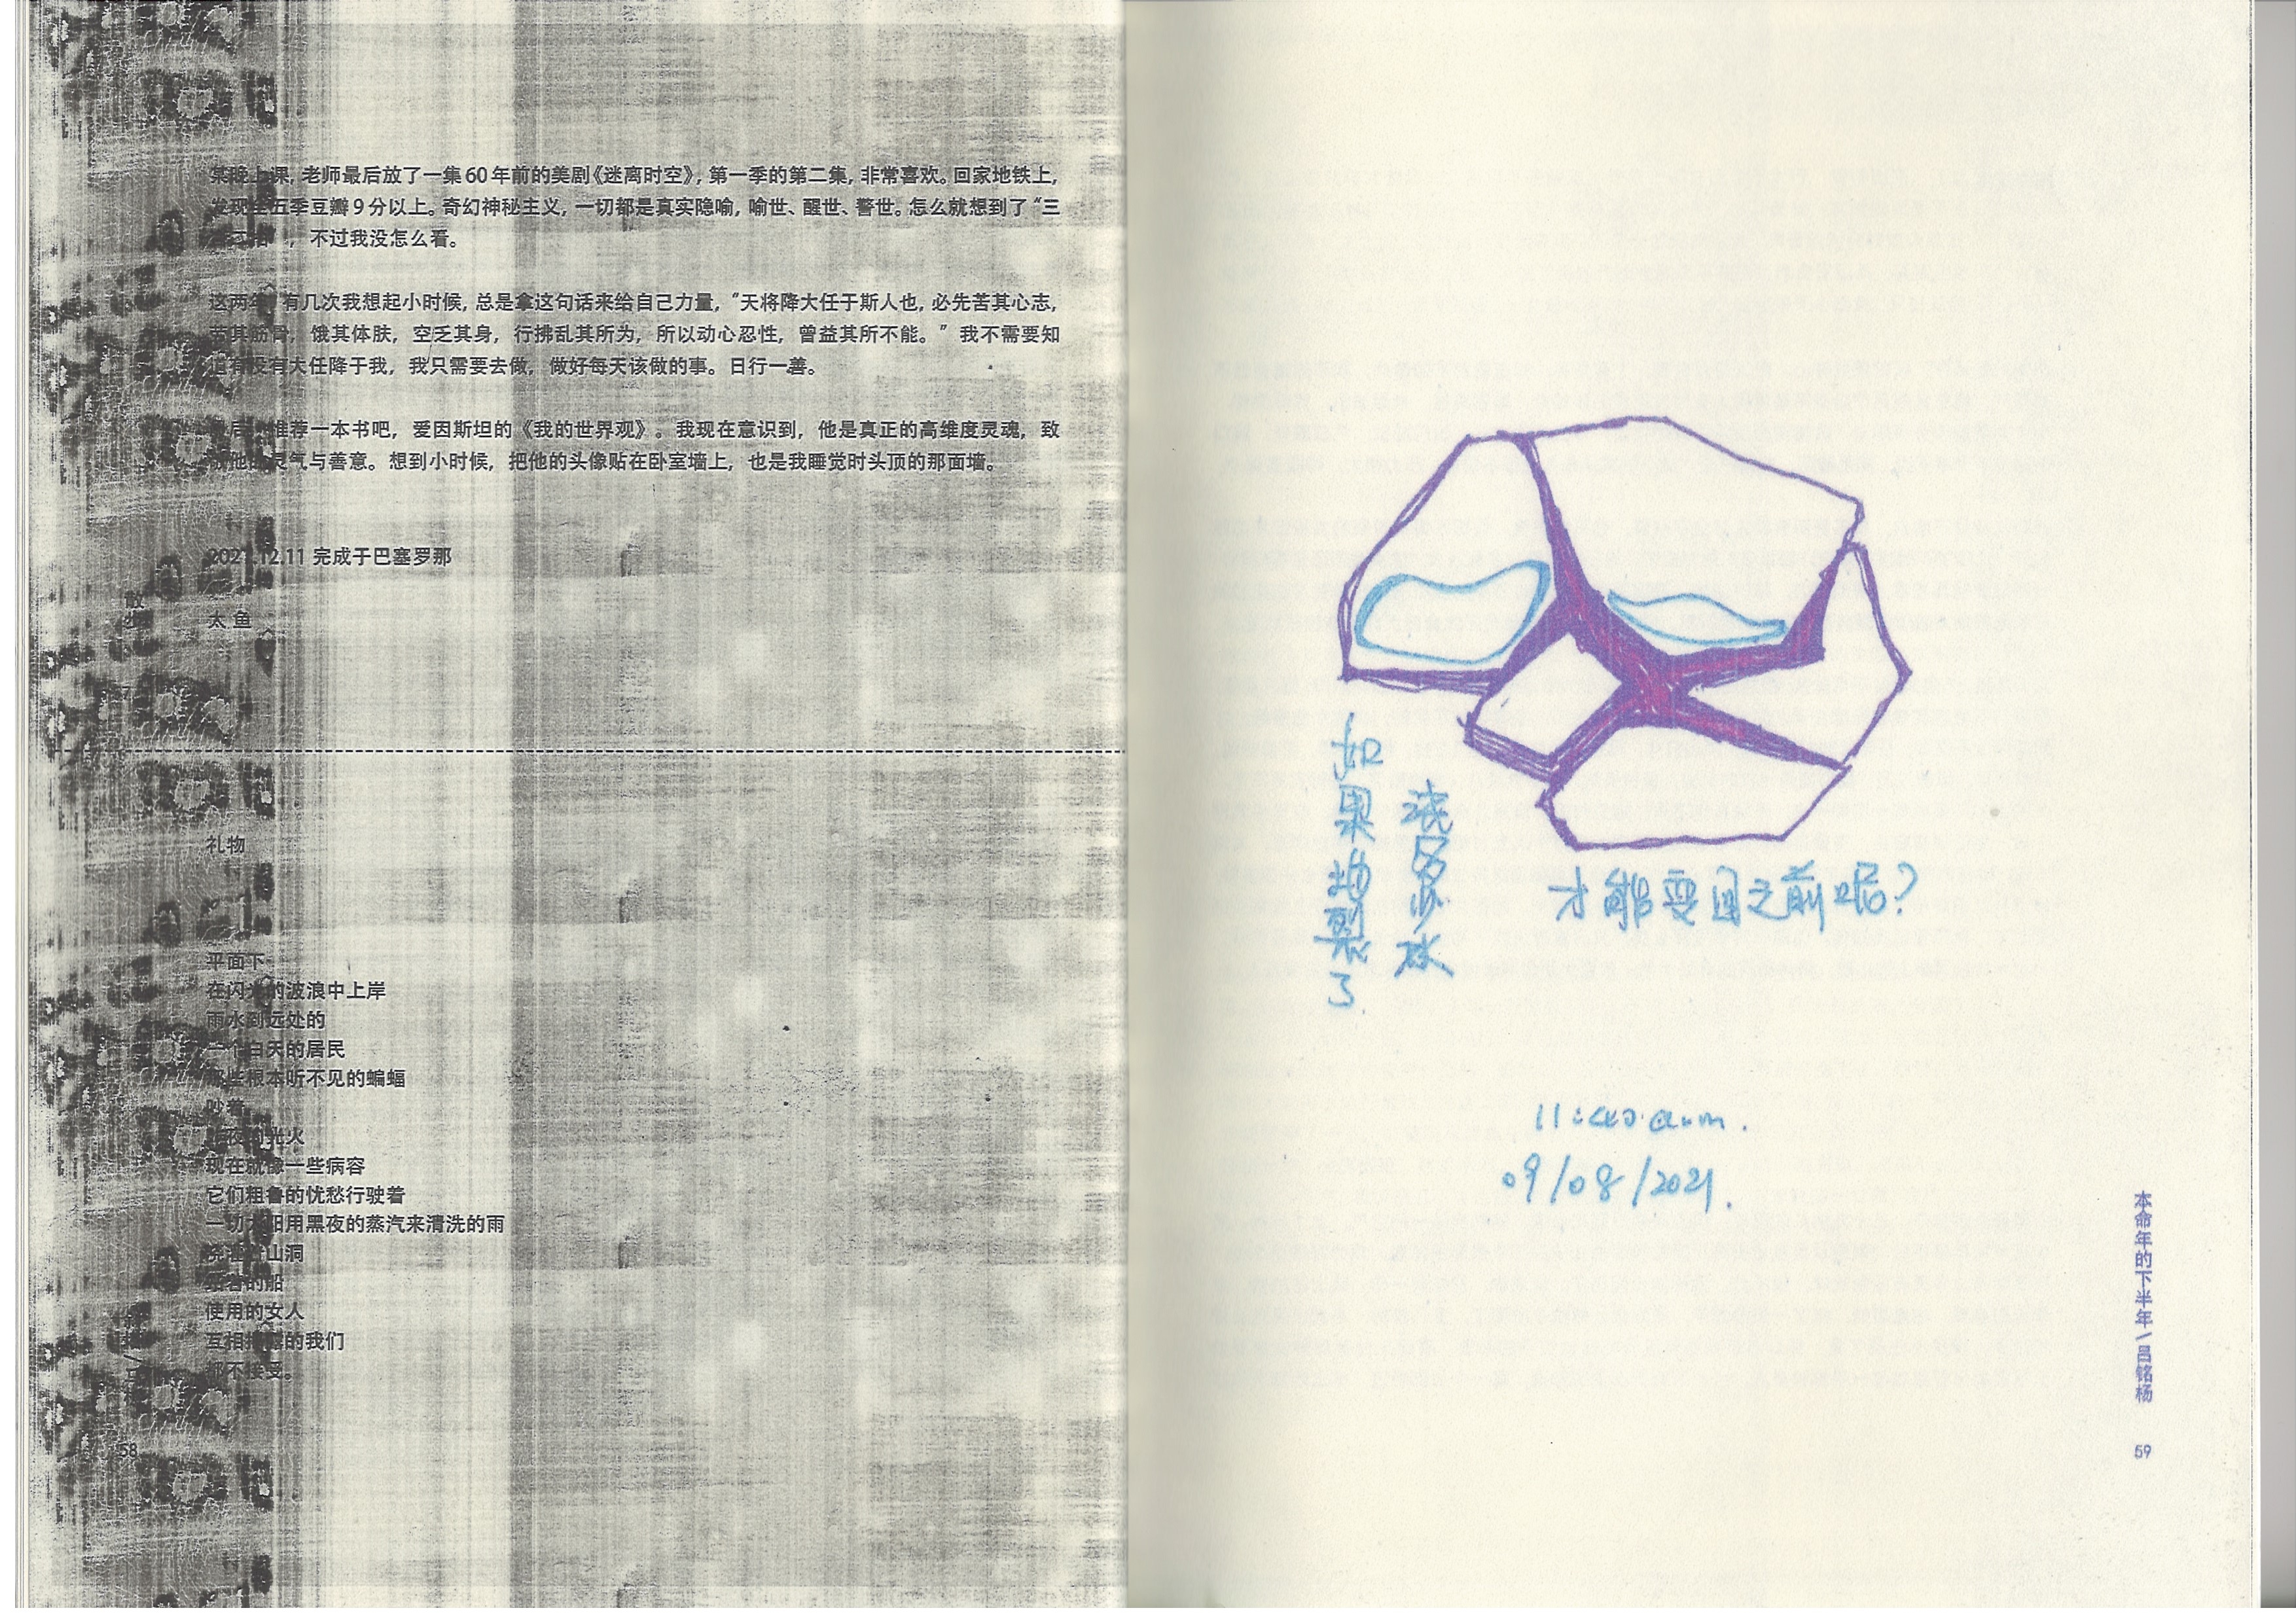 某晚上课，老师最后放了一集60年前的美剧《迷离时空》，第一季的第二集，非常喜欢。回家地铁上，
发现全五季豆瓣9分以上。奇幻神秘主义，一切都是真实隐喻，喻世、醒世、警世。怎么就想到了“三
，不过我没怎么看。
这两年，有几次我想起小时候，总是拿这句话来给自己力量，“天将降大任于斯人也，必先苦其心志，
劳其筋骨，饿其体肤，空乏其身，行拂乱其所为，所以动心忍性，曾益其所不能。”我不需要知
道有没有大任降于我，我只需要去做，做好每天该做的事。日行一善。
推荐一本书吧，爱因斯坦的《我的世界观》。我现在意识到，他是真正的高维度灵魂，致
他的灵气与善意。想到小时候，把他的头像贴在卧室墙上，也是我睡觉时头顶的那面墙。
2021.12.11 完成于巴塞罗那
太鱼
礼物
平面下
在闪光的波浪中上岸
雨水到远处的
一个白天的居民
那些根本听不见的蝙蝠
吵着
夜的光火
现在就像一些病容
它们粗鲁的忧愁行驶着
一切太阳用黑夜的蒸汽来清洗的雨
山洞
的船
使用的女人
互相的我们
都不接受。
58
如果地裂了
浇多少水
才能变回之前呢？
09/08/2021.
本命年的下半年/吕铭杨
59